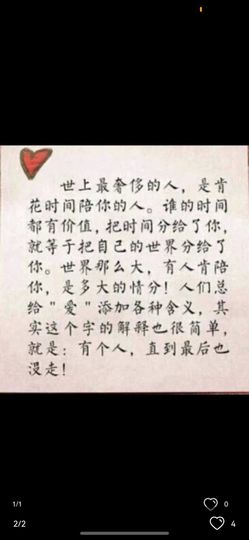 世上最奢侈的人，是肯
花时间陪你的人。谁的时间
都有价值，把时间分给了你，
就等于把自己的世界分给了
你。世界那么大，有人肯陪
你，是多大的情分！人们总
给"爱"添加各种含义，其
实这个字的解释也很简单，
就是：有个人，直到最后也
没走！
1/1
0
2/2
4